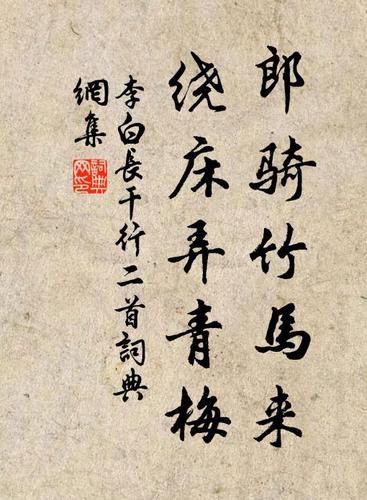 郎骑竹馬来
绕床弄青梅
李白長干行二首詞典
網集
詞典网印